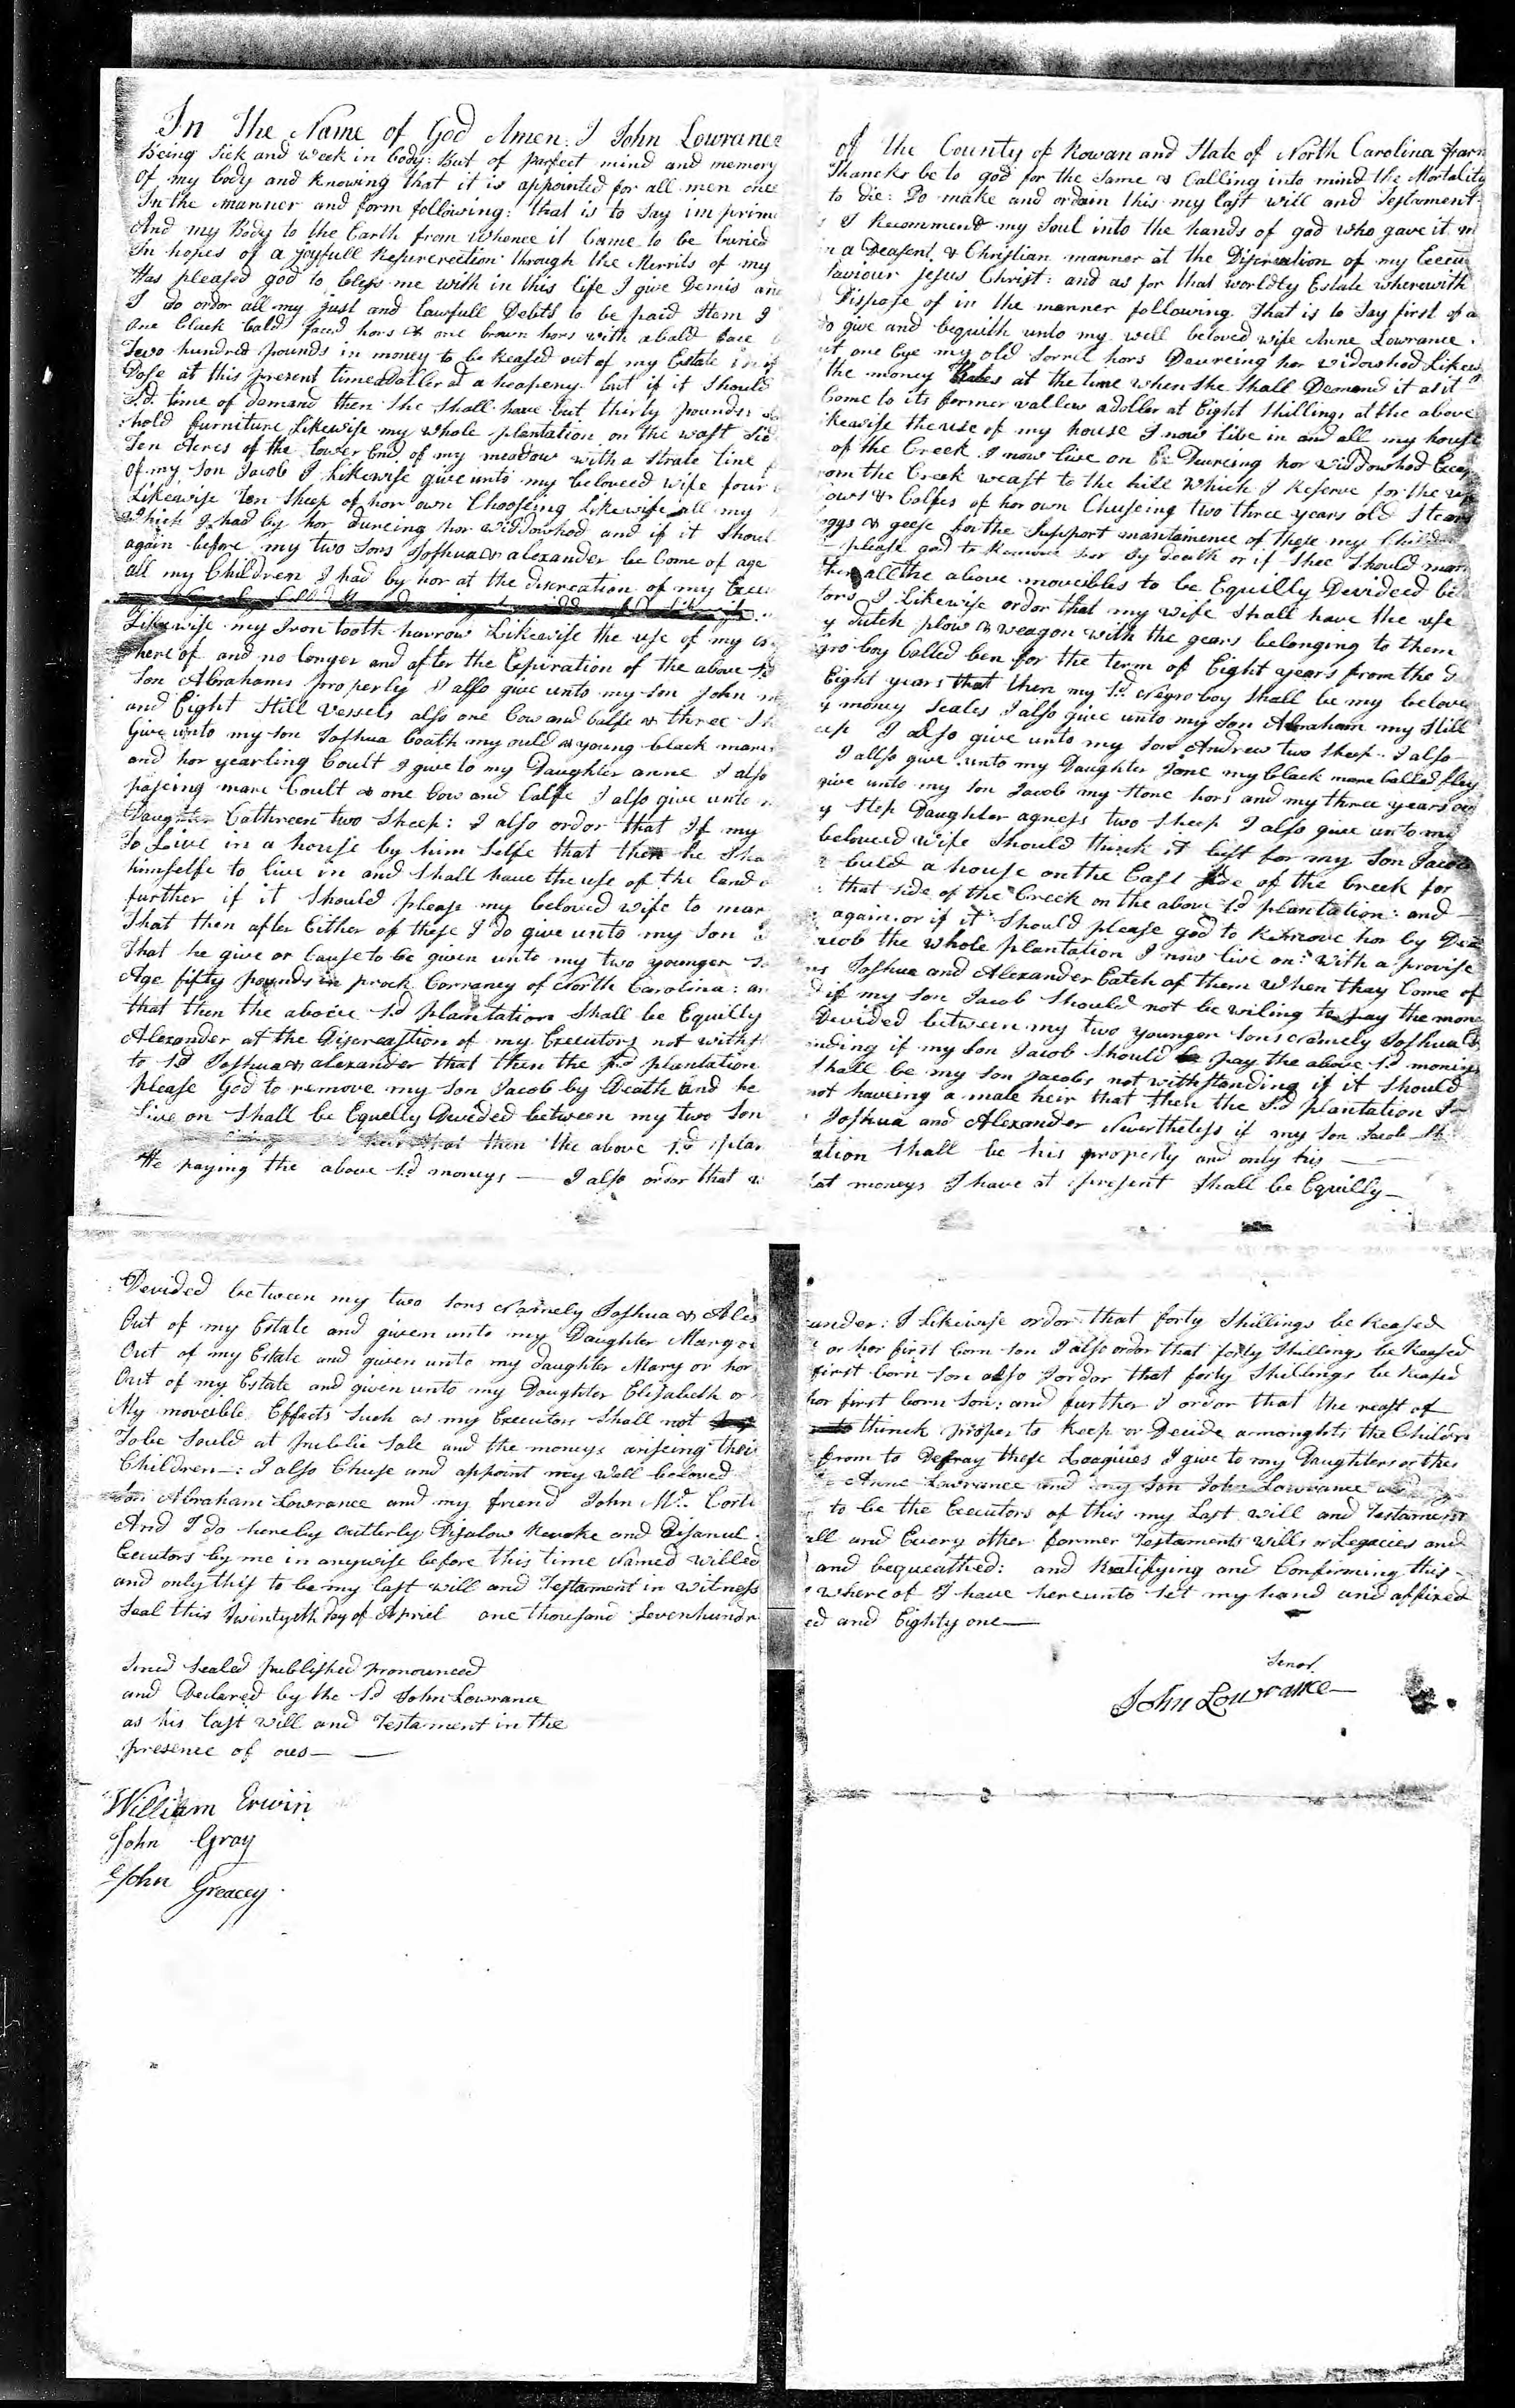 In The Name of God Amen: I John Lowrance of the County of Rowan and State of North Carolina farm
Being Sick and Week in body: But of parfect mind and memory Thancks be to god for the Same & Calling into mind the Mortality
Of my body and Knowing that it is appointed for all men once to die: Do make and ordain this my last will and Testament
In the manner and form following: that is to Say imprim s I Recommend my Soul into the hands of god who gave it
And my Body to the Earth from whence it Came to be buried in a Deasent & Christian manner at the Discreation of my Execu
In hopes of a joyfull Resurerection through the Merrits of my Saviour Jesus Christ: and as for that worldly Estate wherewith
Has pleased god to bless me with in this life I give Demis and Dispose of in the manner following That is to Say first of a
I do ordor all my just and lawfull Debts to be paid Item I do give and bequith unto my well beloved wife Anne Lowrance
one black bald faced hors & one brown hors with a bald face but one Eye my old Sorril hors Deureing hor widowhod Likew
Two hundred pounds in money to be Reased out of my Estate in if the money Rates at the time when She Shall Demand it as it
Dose at this present time a Doller at a heapeny but if it Should Come to its former vallew a doller at Eight Shillings at the above
Sd. time of demand then She Shall have but thirty pounds: Likewise the use of my house I now live in and all my house
hold furniture Likewise my whole plantation on the wast Sid of the Creek I now live on Deureing hor widdowhod Excep
Ten Acres of the lower End of my meadow with a Strate line from the Creek weast to the hill Which I Reserve for the use
Of my Son Jacob I Likewise give unto my beloved wife four Cows & Calfes of hor own Chuseing two three years old Stears
Likewise Ten Sheep of hor own Chooseing Likewise all my hogs & geese for the Support mantainence of these my Children
Which I had by hor dureing hor widdowhod and if it Shoul please god to Remove hor by death or if Shee Should marr
again before my two Sons Joshua & alexander be Come of age then all the above moveibles to be Equilly Devideed be
all my Children I had by hor at the discreation of my Execu tors I Likewise ordor that my wife Shall have the use
y dutch plow & weagon with the gears belonging to them
Likewise my Iron tooth harrow Likewise the use of my negro boy Called ben for the term of Eight years from the d
hereof and no longer and after the Expiration of the above Sd Eight years that then my Sd Negro boy Shall be my belove
Son Abrahams property I also give unto my Son John my money Scales I also give unto my Son Abraham my Still
and Eight Still Vessels also one Cow and Calfe & three Sheep I also give unto my Son Andrew two Sheep I also
Give unto my Son Joshua boath my ould & young black mares I also give unto my Daughter Jane my black mare Called fley
and hor yearling Coult I give to my Daughter anne I also give unto my Son Jacob my Stone hors and my three years old
paseing mare Coult & one Cow and Calfe I also give unto my Step Daughter agness two Sheep I also give unto my
Daughter Cathreen two Sheep: I also ordor that If my beloved wife Should think it best for my Son Jacob
To Live in a house by him Selfe that then he Sha buld a house on the East Side of the Creek for
himselfe to live in and Shall have the use of the land o that Side of the Creek on the above Sd plantation: and
further if it Should please my beloved wife to mar again or if it Should please god to Remove hor by Dea
That then after Either of these I do give unto my Son Jacob the whole plantation I now live on: With a provise
That he give or Cause to be given unto my two younger Sons Joshua and Alexander Eatch of them when thay Come of
Age fifty pounds in prock Corrancy of North Carolina: and if my Son Jacob Should not be wiling to pay the mone
that then the above Sd plantation Shall be Equilly Devided between my two younger Sons Namely Joshua &
Alexander at the Discreastion of my Executors not withstanding if my Son Jacob Should pay the above Sd moneys
to Sd Joshua & alexander that then the Sd plantation Shall be my Son Jacobs not withstanding if it Should
please God to remove my Son Jacob by Death and he not haveing a male heir that then the Sd plantation I
Live on Shall be Equelly Devided between my two Son Joshua and Alexander Nevertheless if my Son Jacob Sh
heir that then the above Sd plantation Shall be his property and only his
He paying the above Sd moneys — I also ordor that what moneys I have at present Shall be Equilly
Devided between my two Sons Namely Joshua & Alexander: I Likewise ordor that forty Shillings be Reased
Out of my Estate and given unto my Daughter Margre or hor first born Son I also ordor that forty Shillings be Reased
Out of my Estate and given unto my daughter Mary or hor first born Son also I ordor that forty Shillings be Reased
Out of my Estate and given unto my Daughter Elisabeth or hor first born Son: and further I ordor that the reast of
My moveible Effects Such as my Executors Shall not thinck proper to Keep or Devide armonghts the Childre
To be Sould at publick Sale and the moneys ariseing their from to Defray these Leagacies I give to my Daughters or their
Children—: I also Chuse and appoint my well beloved Anne Lowrance and my Son John Lowrance
Son Abraham Lowrance and my friend John Mc. Cork to be the Executors of this my Last will and Testament
And I do hereby outterly Disalow Revoke and Disanul all and Every other former Testaments wills or Legacies and
Executors by me in anywise before this time Named willed and bequeathed: and Ratifying and Confirming this
and only this to be my last will and Testament in witness whereof I have hereunto Set my hand and affixed
Seal this Twintyeth Day of Apriel one thousand Sevenhundred and Eighty one—
Sined Sealed published pronounced
and Declared by the Sd John Lowrance
as his last will and Testament in the
presence of oues—
Senor
John Lowrance
William Erwin
John Gray
John Greacey